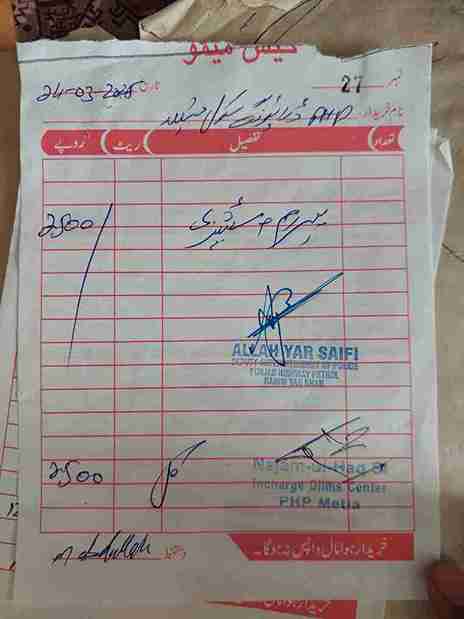 کیش میمو
نمبر 27 تاریخ 24-03-2025
نام خریدار PHP ڈرائیونگ سکول
تعداد تفصیل ریٹ روپے
2500/
ALLAH YAR SAIFI
DEPUTY SUPERINTENDENT OF POLICE
PUNJAB HIGHWAY PATROL
RAHIM YAR KHAN
2500
Najam-ul-Haq SI
Incharge Dlims Center
PHP Metla
دستخط
خریدا ہوا مال واپس نہ ہوگا۔